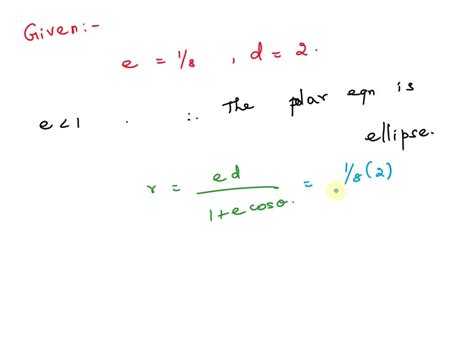 Given:-
e = 1/8 , d = 2.
e < 1 . ∴ The polar eqn is
ellipse.
r = ed / 1 + e cosθ. = 1/8 (2)